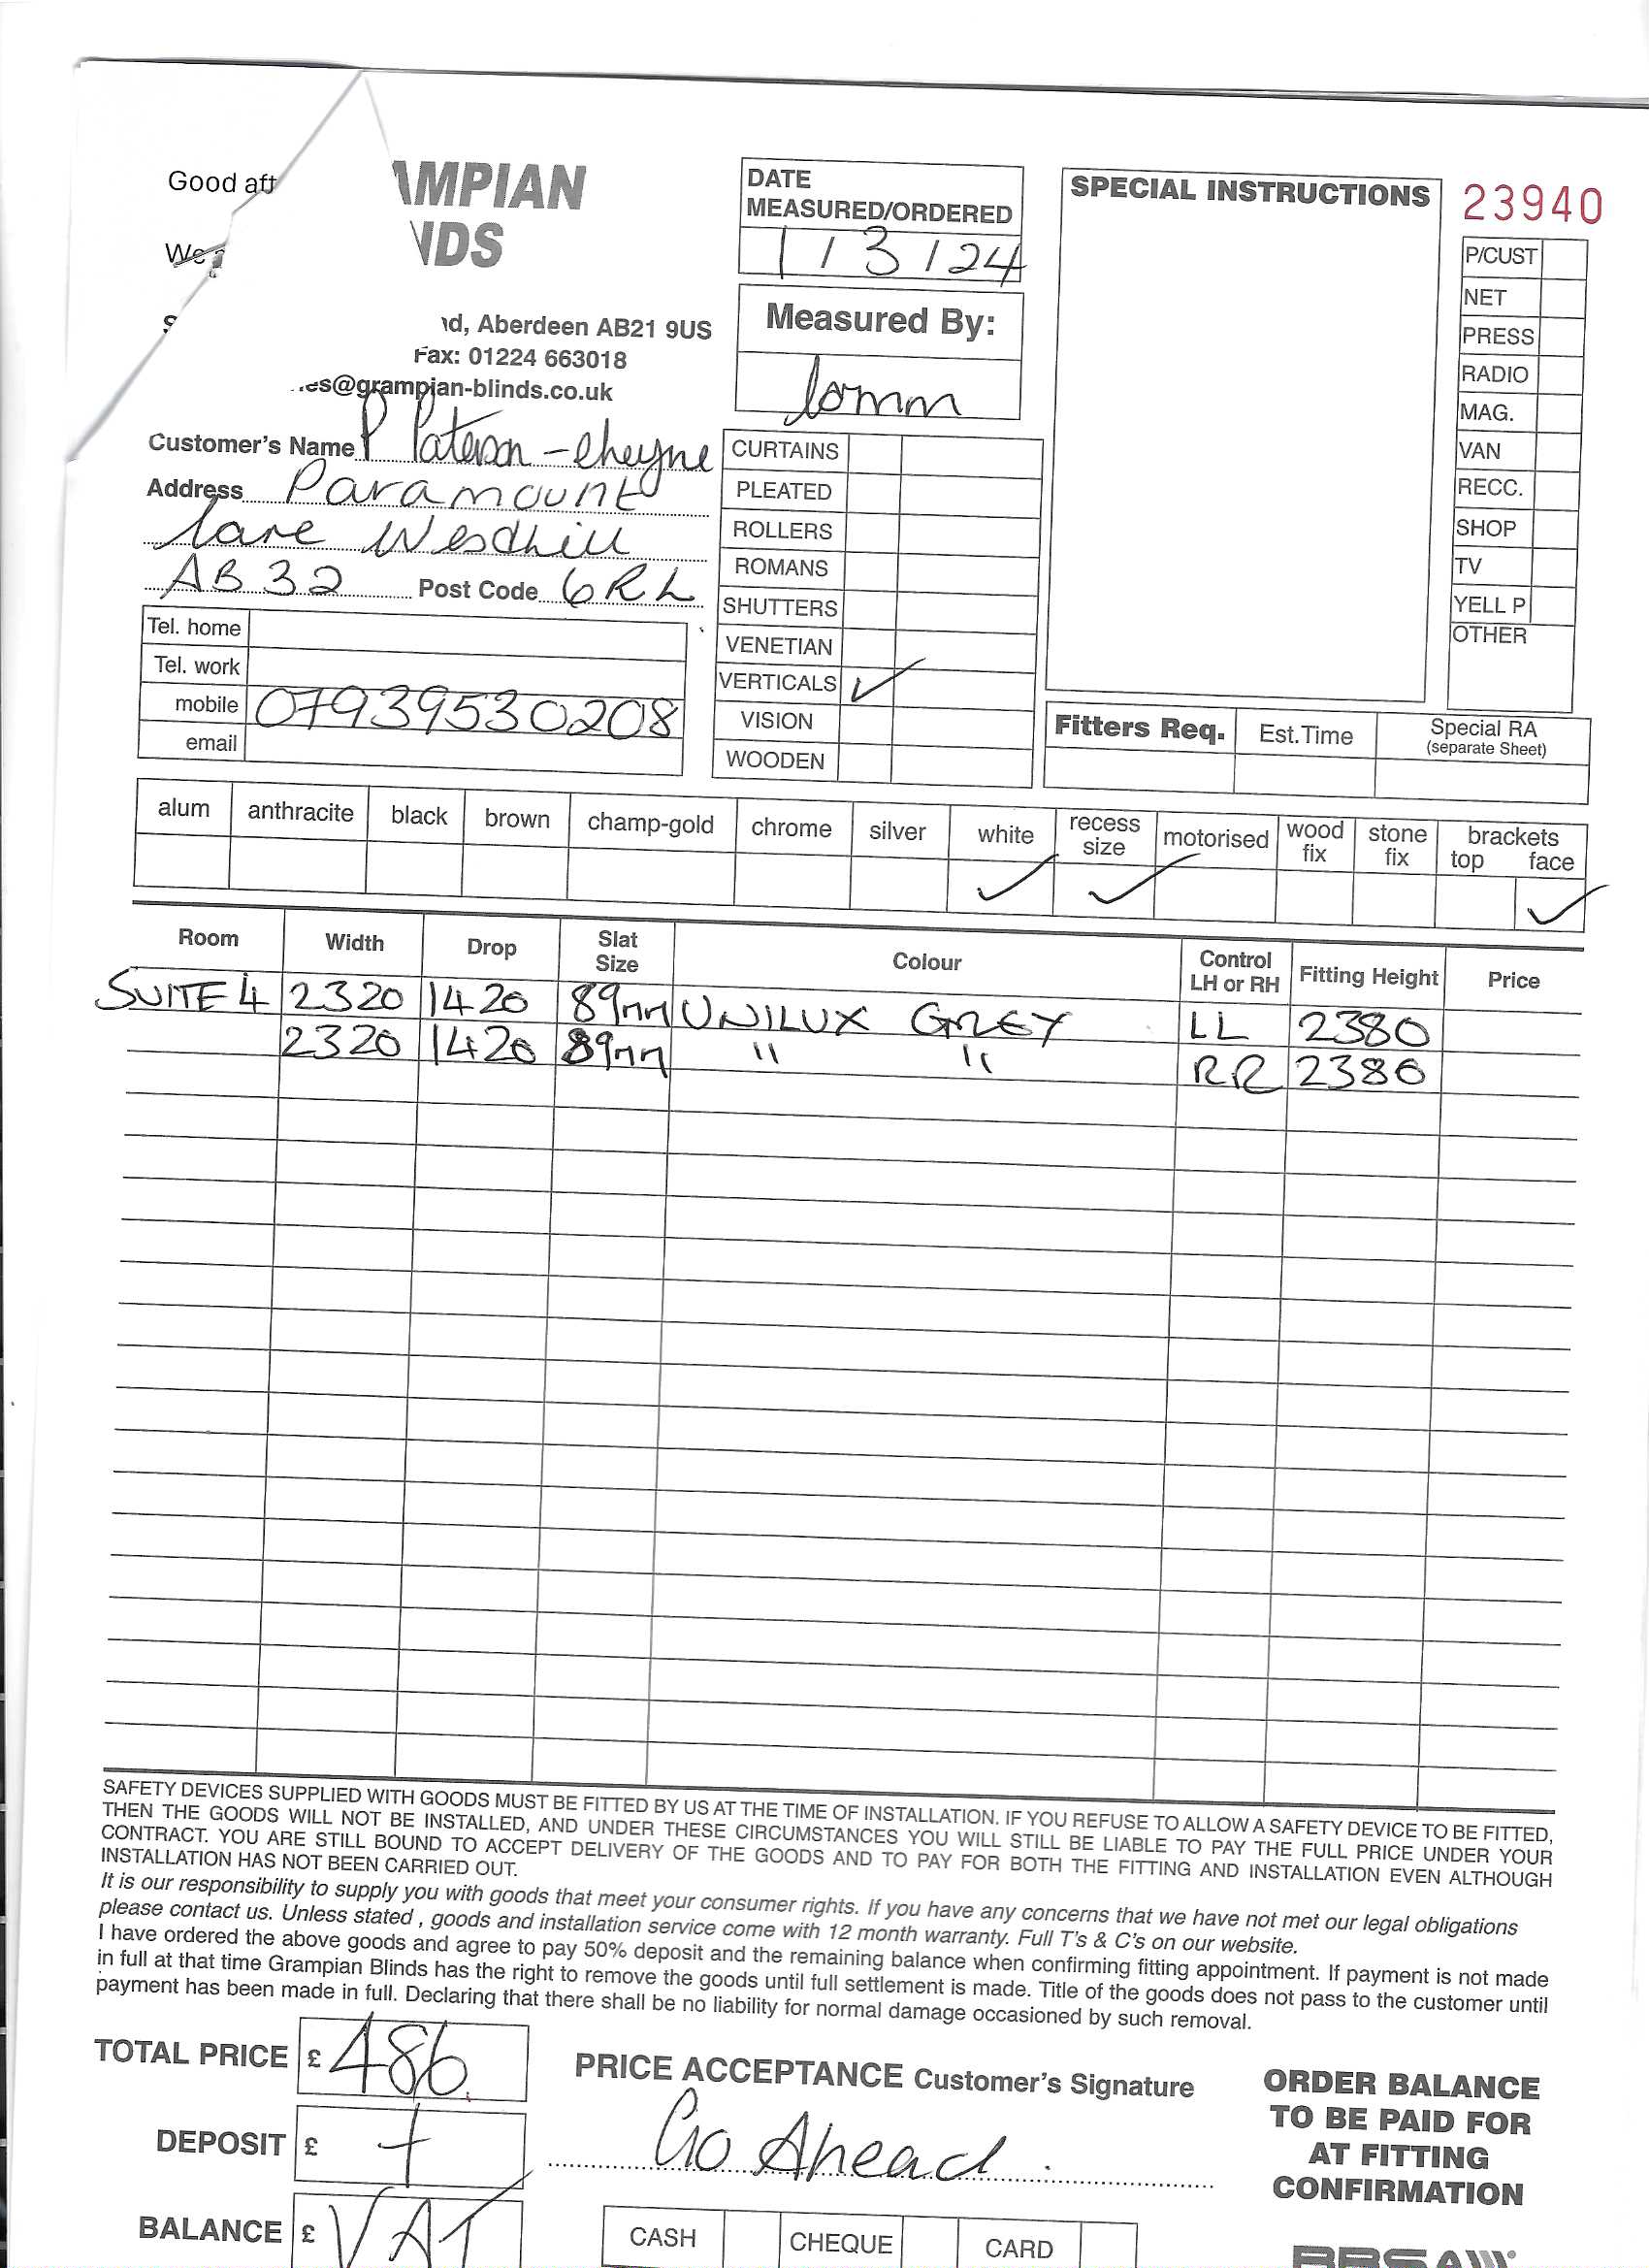 Good aft
We
AMPIAN
NDS
nd, Aberdeen AB21 9US
Fax: 01224 663018
es@grampian-blinds.co.uk
DATE
MEASURED/ORDERED
1 / 3 / 24
Measured By:
SPECIAL INSTRUCTIONS
23940
P/CUST
NET
PRESS
RADIO
MAG.
VAN
RECC.
SHOP
TV
YELL P
OTHER
Customer's Name P Paterson-Cheyne
Address Paramount
Care Westhill
AB32 Post Code 6RL
Tel. home
Tel. work
mobile 07939530208
email
CURTAINS
PLEATED
ROLLERS
ROMANS
SHUTTERS
VENETIAN
VERTICALS ✓
VISION
WOODEN
Fitters Req. Est.Time Special RA
(separate Sheet)
alum anthracite black brown champ-gold chrome silver white recess size motorised wood fix stone fix brackets top face
✓ ✓ ✓
Room Width Drop Slat Size Colour Control LH or RH Fitting Height Price
SUITE 4 2320 1420 89mm UNILUX GREY LL 2380
2320 1420 89mm " " RR 2380
SAFETY DEVICES SUPPLIED WITH GOODS MUST BE FITTED BY US AT THE TIME OF INSTALLATION. IF YOU REFUSE TO ALLOW A SAFETY DEVICE TO BE FITTED,
THEN THE GOODS WILL NOT BE INSTALLED, AND UNDER THESE CIRCUMSTANCES YOU WILL STILL BE LIABLE TO PAY THE FULL PRICE UNDER YOUR
CONTRACT. YOU ARE STILL BOUND TO ACCEPT DELIVERY OF THE GOODS AND TO PAY FOR BOTH THE FITTING AND INSTALLATION EVEN ALTHOUGH
INSTALLATION HAS NOT BEEN CARRIED OUT.
It is our responsibility to supply you with goods that meet your consumer rights. If you have any concerns that we have not met our legal obligations
please contact us. Unless stated , goods and installation service come with 12 month warranty. Full T's & C's on our website.
I have ordered the above goods and agree to pay 50% deposit and the remaining balance when confirming fitting appointment. If payment is not made
in full at that time Grampian Blinds has the right to remove the goods until full settlement is made. Title of the goods does not pass to the customer until
payment has been made in full. Declaring that there shall be no liability for normal damage occasioned by such removal.
TOTAL PRICE £ 486
DEPOSIT £ +
BALANCE £ VAT
PRICE ACCEPTANCE Customer's Signature
Go Ahead.
CASH CHEQUE CARD
ORDER BALANCE
TO BE PAID FOR
AT FITTING
CONFIRMATION
BBSA